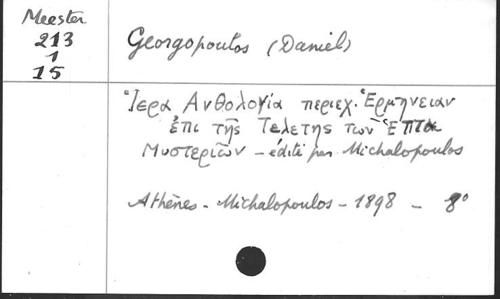 Meester
213
1
15
Georgopoulos (Daniel)
Ἱερα Ανθολογία περιεχ. Ἑρμηνειαν
ἐπι τῆς Τελετης τῶν Ἑπτα
Μυστεριῶν - édité par Michalopoulos
Athènes - Michalopoulos - 1898 - 8°